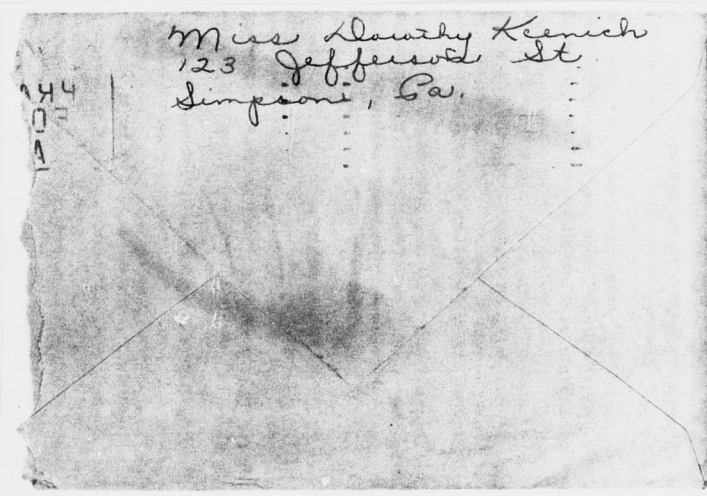 Miss Dorothy Keenich
123 Jefferson St
Simpson, Pa.
44